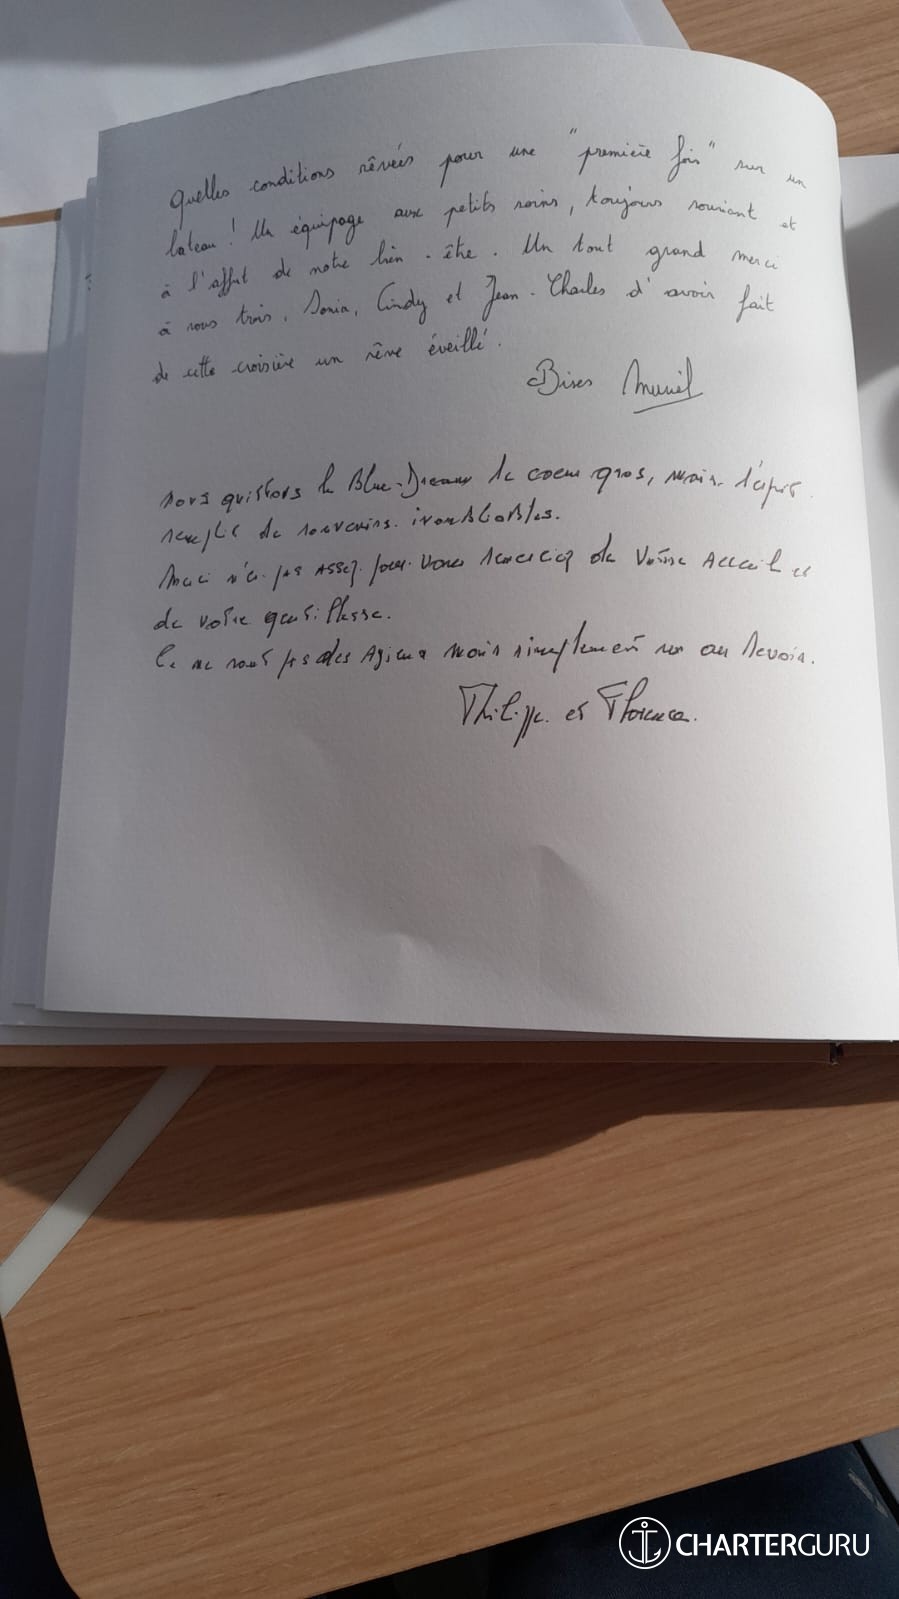 Quelles conditions rêvées pour une "première fois" sur un
bateau! Un équipage aux petits soins, toujours souriant et
à l'affut de notre bien-être. Un tout grand merci
à vous trois, Sonia, Cindy et Jean-Charles d'avoir fait
de cette croisière un rêve éveillé.
Bises Muriel
Nous quittons le Blue-Dream le coeur gros, mais l'esprit
remplit de souvenirs inoubliables.
Merci n'est pas assez pour vous remercier de votre accueil et
de votre gentillesse.
Ce ne sont pas des adieux mais simplement un au revoir.
Philippe et Florence.
CHARTERGURU